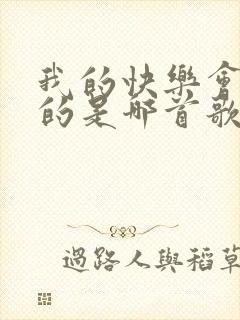 我的快樂會
的是哪首歌
過路人與稻草